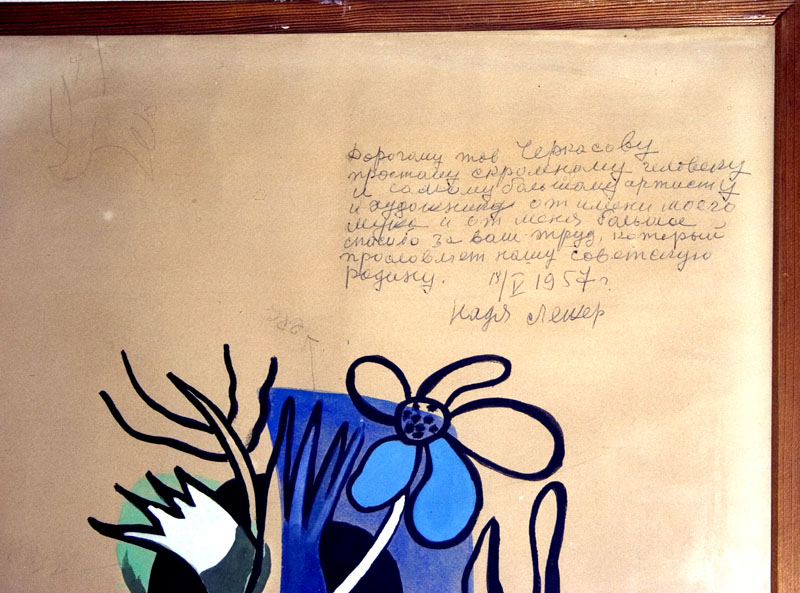 Дорогому тов Черкасову
простому скромному человеку
и самому большому артисту
и художнику от имени моего
мужа и от меня большое
спасибо за ваш труд, который
прословляет нашу советскую
родину. 14/V 1957 г.
Надя Лежер